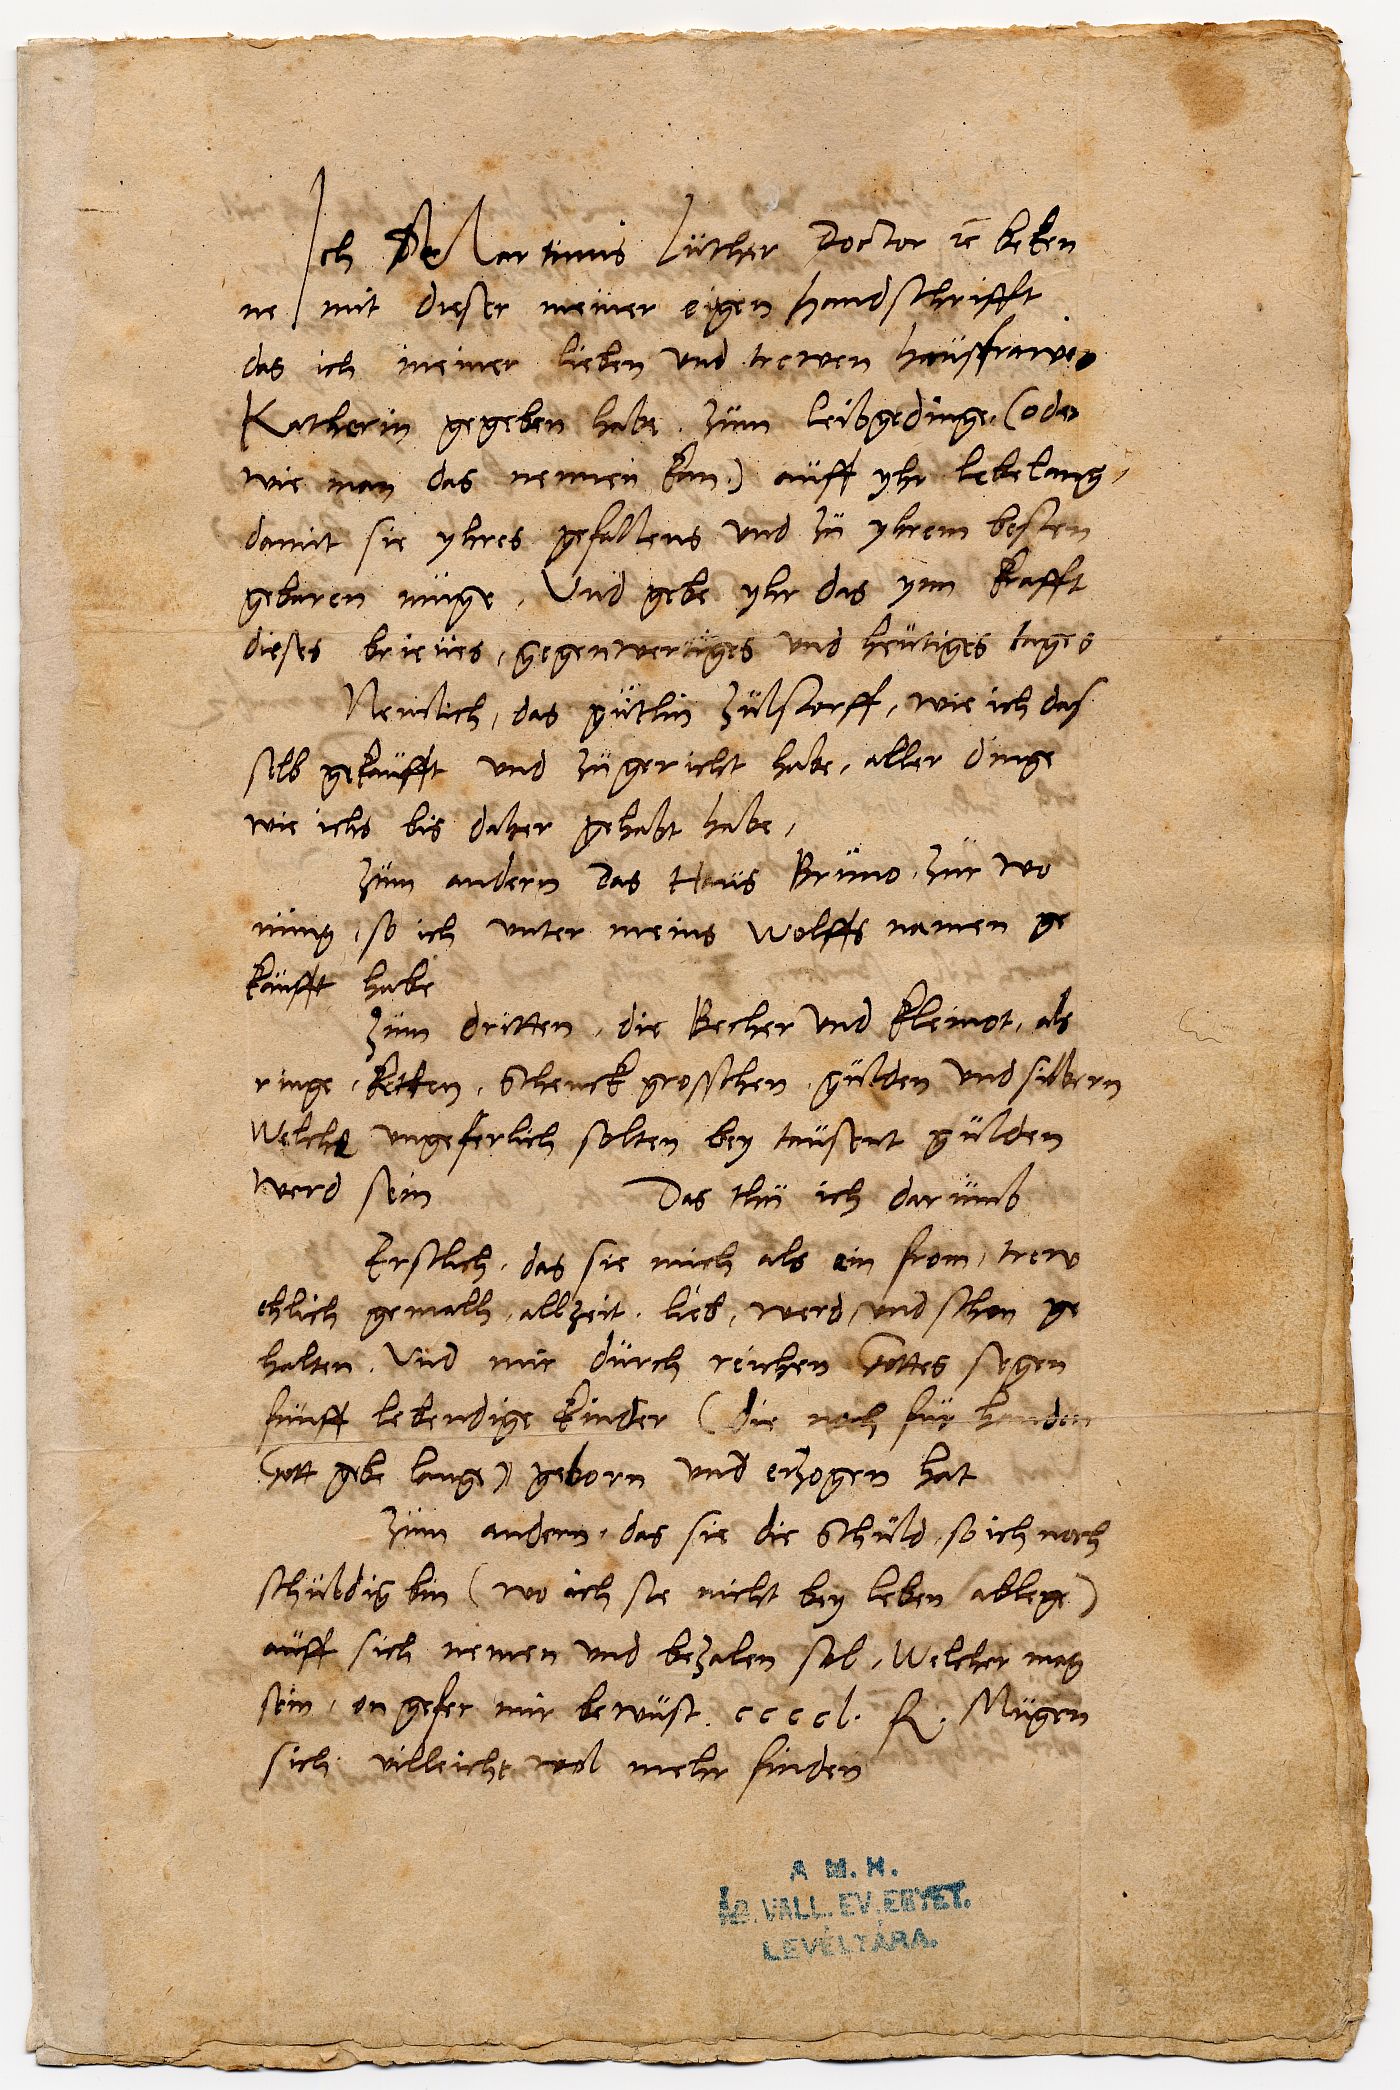 Ich Martinus Luther Doctor ꝛc beken
ne mit dieser meiner eigen handschrifft
das ich meiner lieben vnd trewen hausfrawen
Katherin gegeben habe. zum leibgedinge. (oder
wie man das nennen kan.) auff yhr lebelang,
damit sie yhres gefallens vnd zu yhrem besten
gebaren müge, Vnd gebe yhr das ynn krafft
dieses brieues, gegenwertiges vnd heutiges tages
Nemlich, das gütlin Zulstorff, wie ich das
selb gekaufft vnd zugericht habe, aller dinge
wie ichs bis daher gehabt habe,
Zum andern das Haus Bruno. zur wo
nung, so ich vnter meins Wolffs namen ge
kaufft habe
Zum dritten, die Becher vnd kleinot, als
ringe, ketten, Schenck groschen, gulden vnd silbern
Welche vngeferlich solten bey tausent gulden
werd sein Das thu ich darumb
Erstlich, das sie mich als ein from, trew
ehlich gemalh, allzeit, lieb, werd, vnd schon ge
halten. Vnd mir durch reichen Gottes segen
funff lebendige kinder (die noch fur handen
Gott gebe lange) geborn vnd erzogen hat
Zum andern, das sie die Schuld, so ich noch
schuldig bin (wo ich sie nicht bey leben ablege)
auff sich nemen vnd bezalen sol, Welcher mag
sein, vn gefer mir bewust. ccccl. fl. Mügen
sich villeicht wol mehr finden
Á M. H.
ÁG. VALL. EV. EGYET.
LEVÉLTÁRA.
3